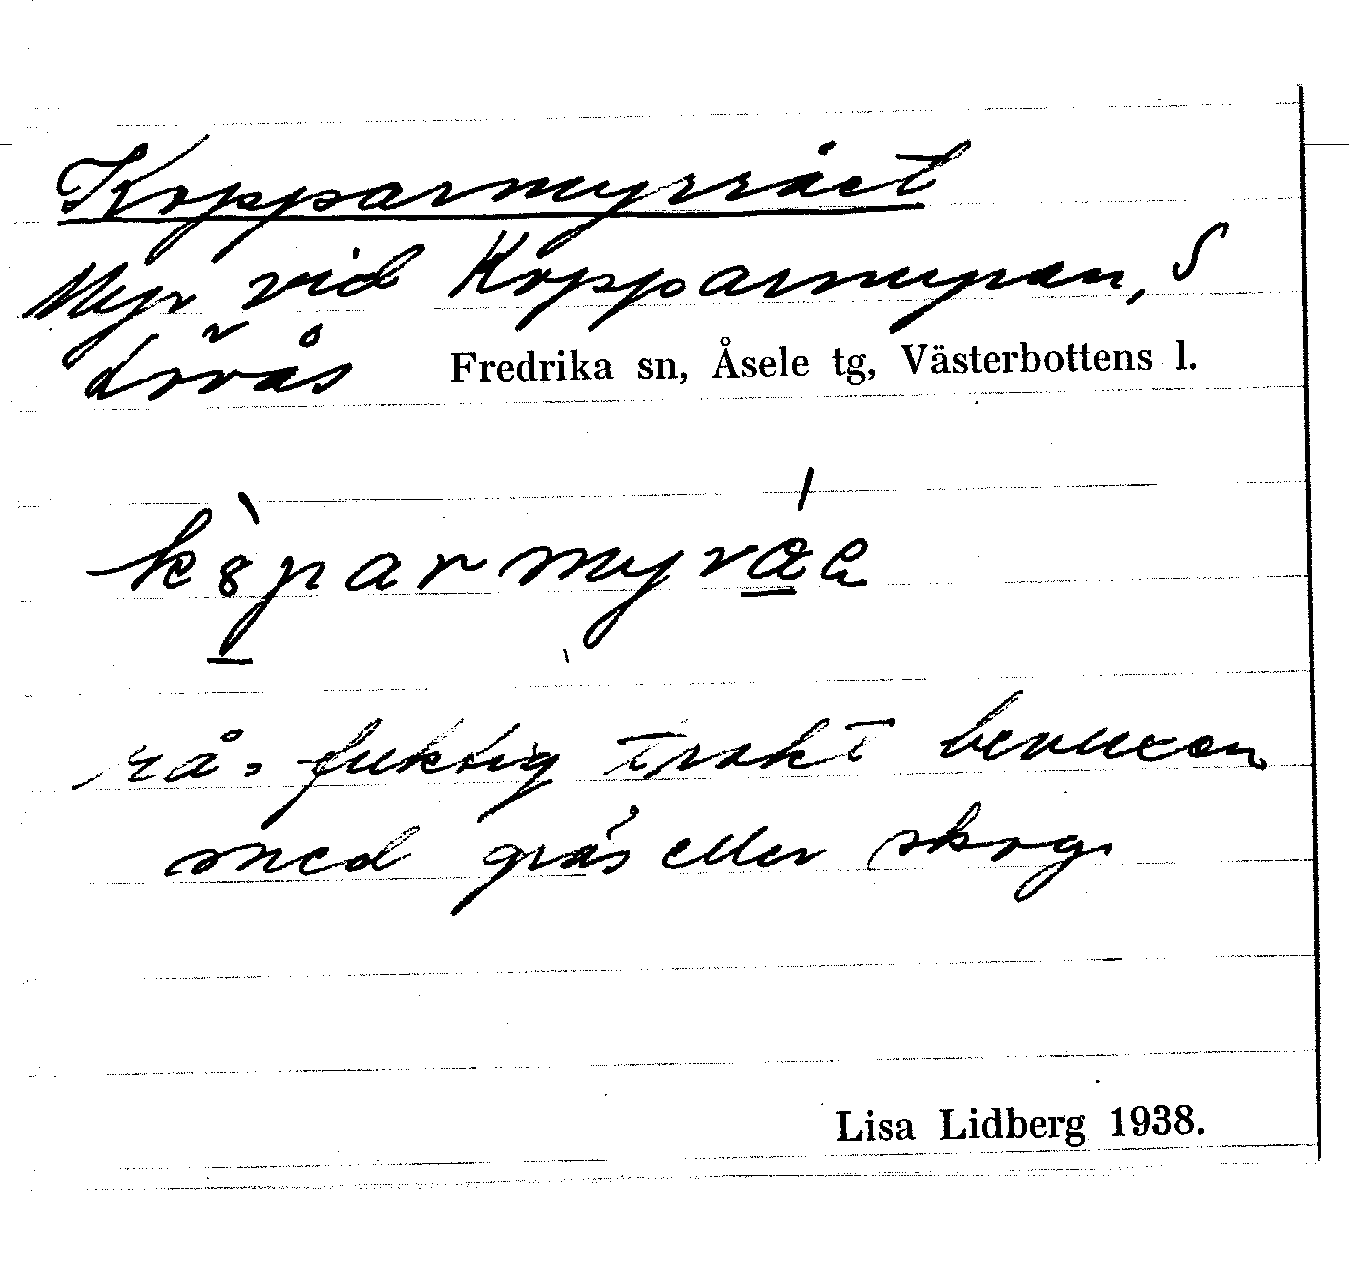 Kopparmyrrået
Myr vid Kopparmyran, S
Fredrika sn, Åsele tg, Västerbottens l.
rå, fuktig trakt bevuxen
med gräs eller skog.
Lisa Lidberg 1938.